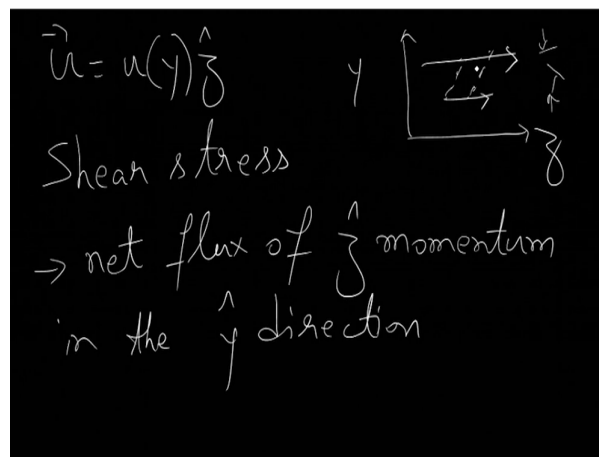 u⃗ = u(y) ẑ
y
z
Shear stress
→ net flux of ẑ momentum
in the ŷ direction